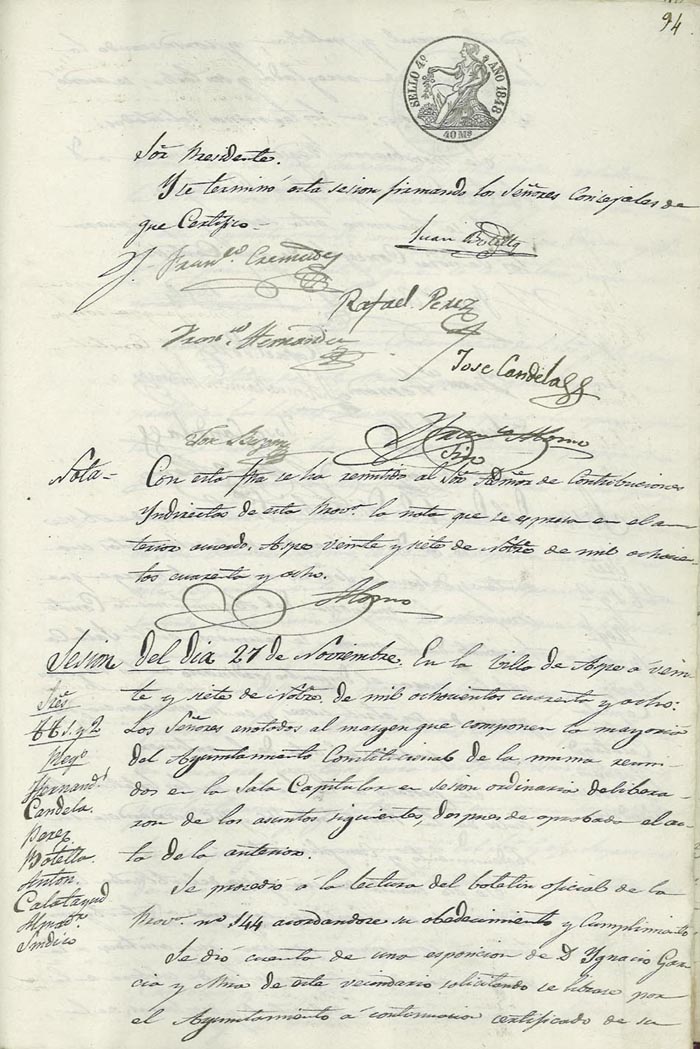 94
SELLO 4º AÑO 1848
40 Ms
Sor Presidente.
Y se terminó esta sesion firmando los Señores Concejales de
que Certifico =
Juan Botella
Franco Cremades
Rafael Perez
Franco Hernandez
Jose Candela
Franco Alonso
Srio
Nota = Con esta fha se ha remitido al Sor Admor de Contribuciones
Yndirectas de esta Prova la nota que se espresa en el an
terior acuerdo. Aspe veinte y siete de Novbre de mil ochocien
tos cuarenta y ocho.
Alonso
Sesion del dia 27 de Noviembre. En la Villa de Aspe a vein
te y siete de Novbre de mil ochocientos cuarenta y ocho:
Los Señores anotados al margen que componen la mayoria
del Ayuntamiento Constitucional de la misma reuni-
dos en la Sala Capitular en sesion ordinaria delibera-
ron de los asuntos siguientes, despues de aprobada el ac-
ta de la anterior.
Sres
AA. 1. y 2
Rego
Hernandz
Candela.
Perez
Botella
Anton.
Calatayud
Almodr
Sindico
Se procedió a la lectura del boletin oficial de la
Prova nº 144 acordandose su obedecimiento y cumplimiento
Se dió cuenta de una esposicion de D. Ygnacio Gar
cia y Mira de este vecindario solicitando se librase por
el Ayuntamiento á continuacion certificado de su